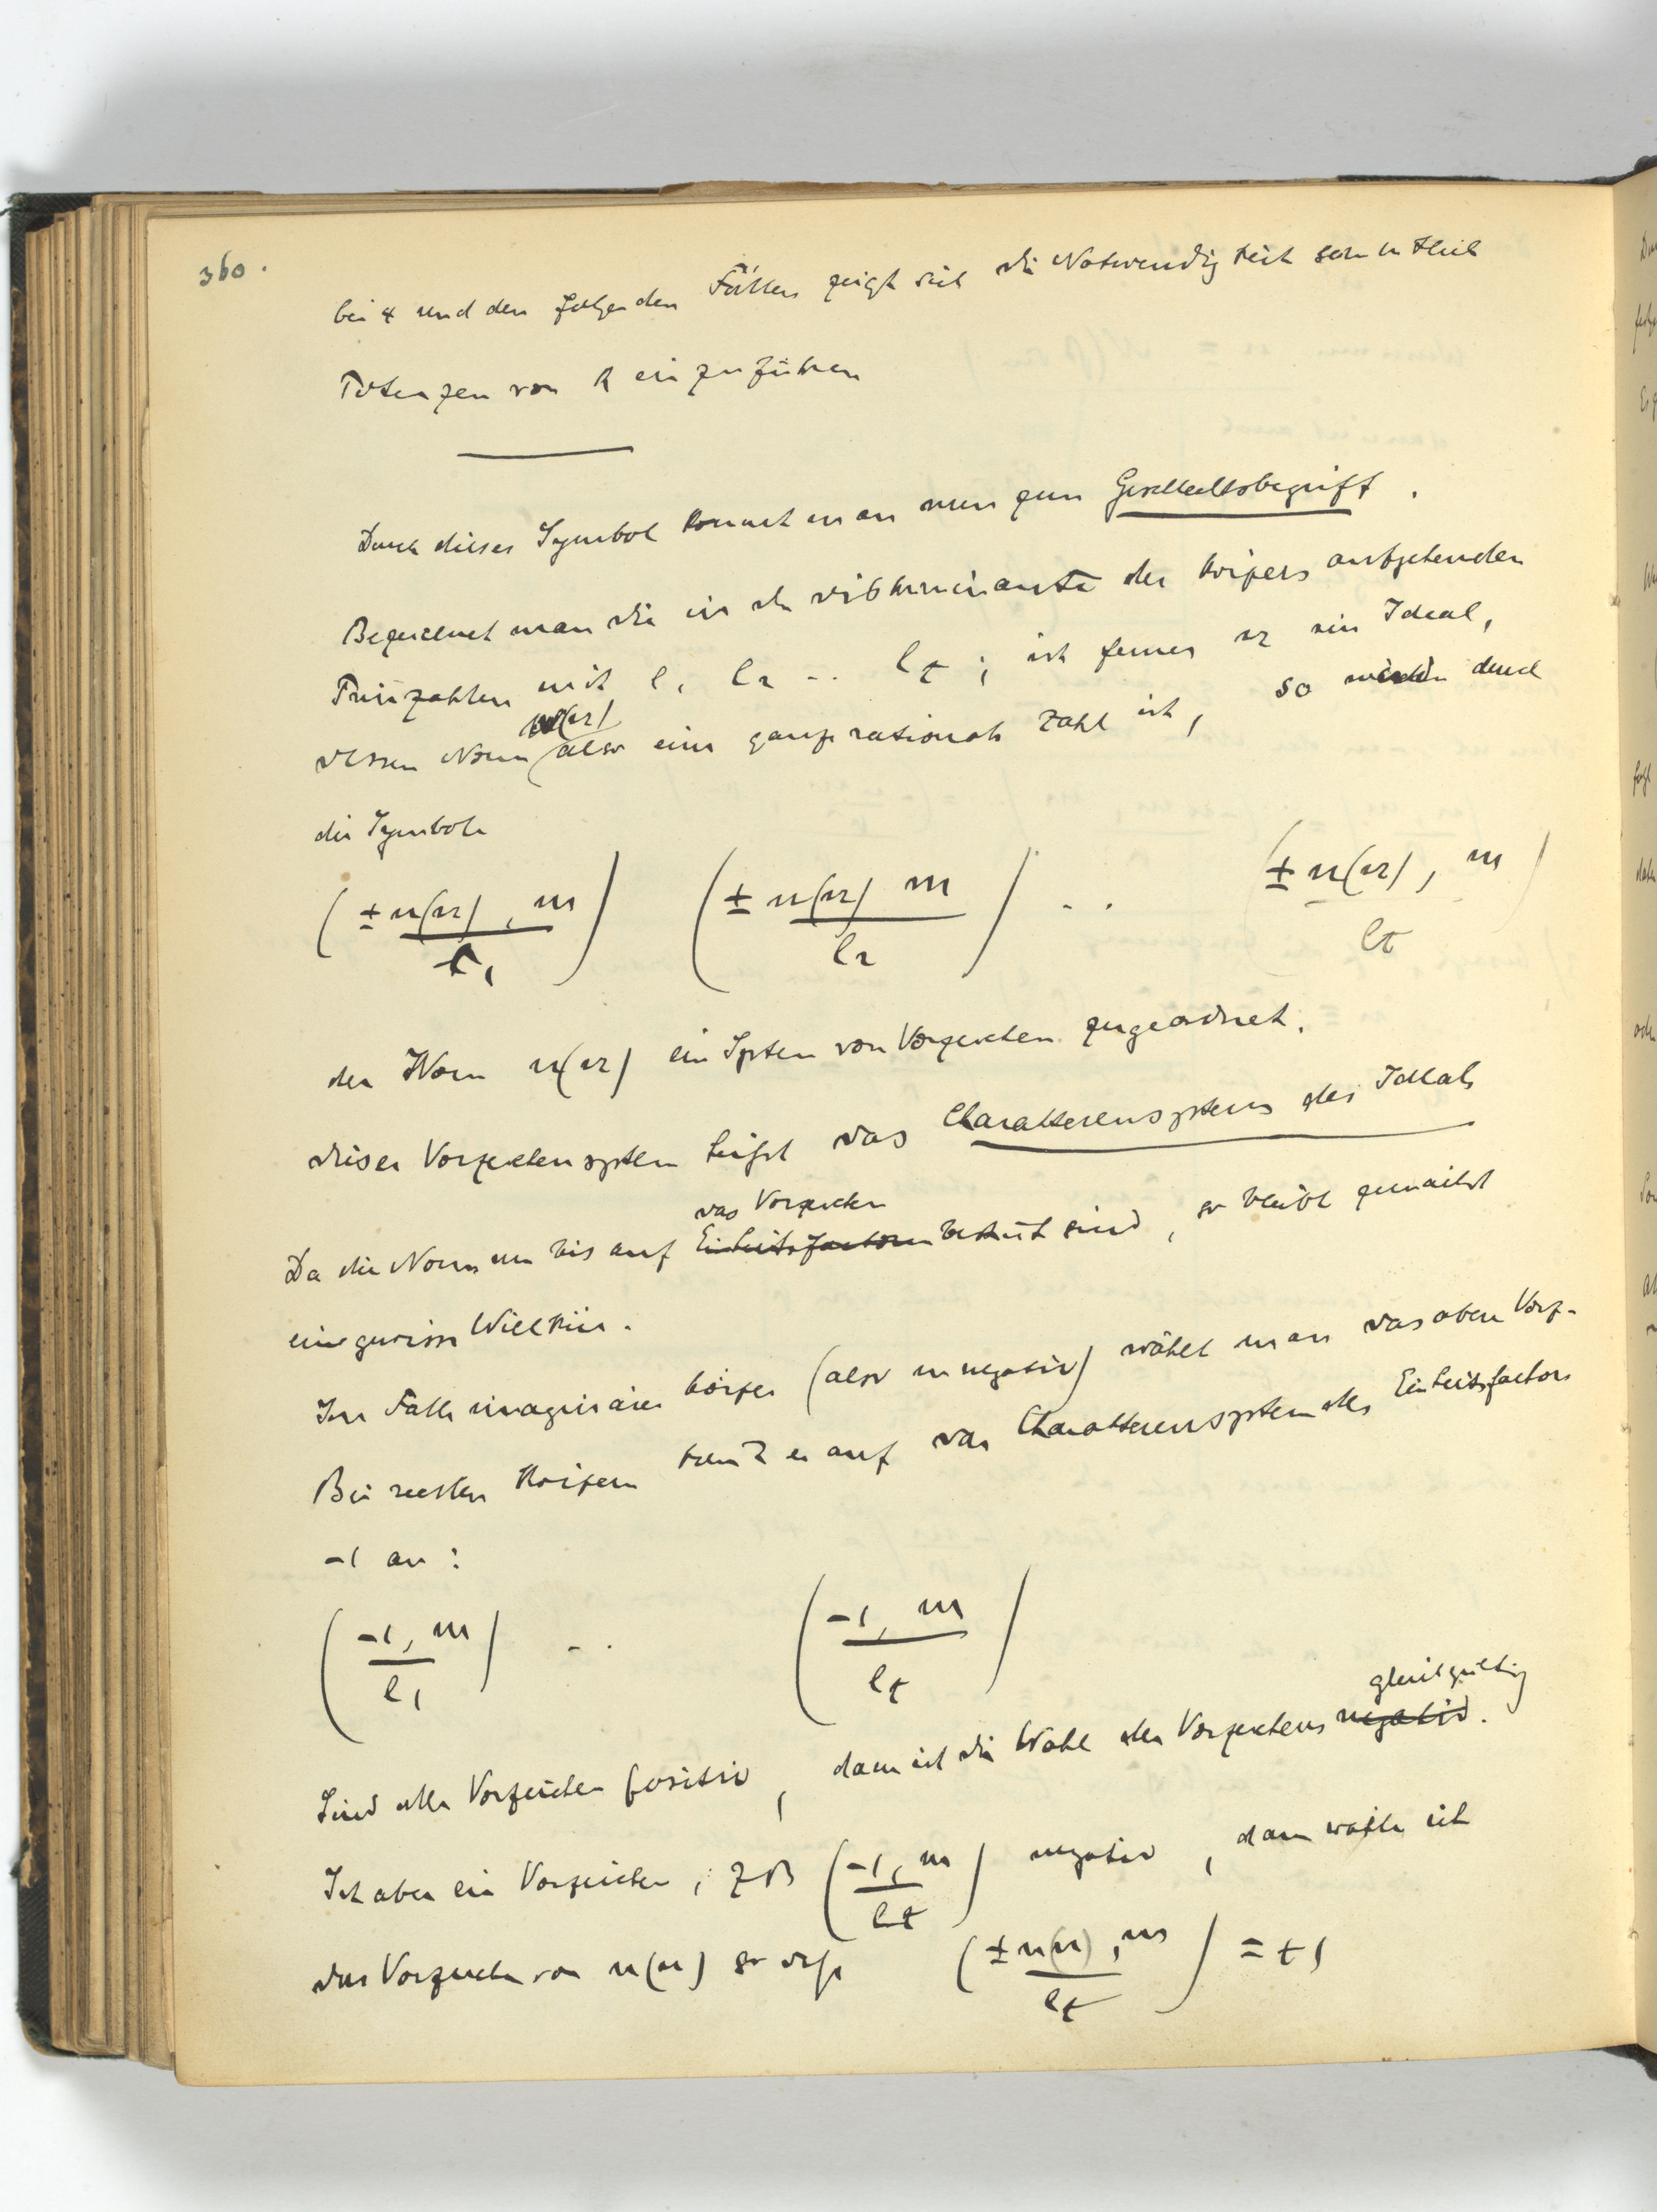 360.
bei 4 und den folgenden Fällen zeigt sich die Notwendigkeit
Potenzen von 2 einzuführen
Durch dieses Symbol kommt man nun zum Geschlechtsbegriff.
Bezeichnet man die in der Diskriminante des Körpers aufgehenden
Primzahlen mit l1 l2 .. lt ; ist ferner ein Ideal,
dessen Norm n(a) also eine ganze rationale Zahl ist, so werden durch
die Symbole
(± n(a), m / l1) (± n(a) m / l2) .. (± n(a), m / lt)
der Norm n(a) ein System von Vorzeichen zugeordnet.
Dieses Vorzeichensystem heisst das Charakterensystem des Ideals
das Vorzeichen
Da die Normen nur bis auf Einheitsfactoren bestimt sind, so bleibt zunächst
eine gewisse Willkür.
Im Falle imaginärer Körper (also m negativ) wählt man das obere Vorz-
Bei reellen Körpern kommt es auf das Charakterensystem des Einheitsfactors
-1 an:
(-1, m / l1) .. (-1, m / lt)
gleichgültig
Sind alle Vorzeichen positiv, dann ist die Wahl des Vorzeichens negativ.
Ist aber ein Vorzeichen, z B (-1, m / lt) negativ, dann wähle ich
das Vorzeichen von n(a) so dass (± n(a), m / lt) = +1